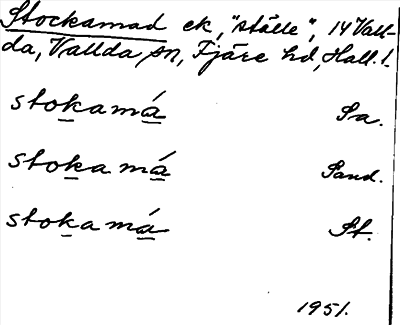 Stockamad ek, "ställe", 14 Vall-
da, Vallda sn, Fjäre hd, Hall. l.
stokamá Sa.
stokamá Sand.
stokamá St.
1951.